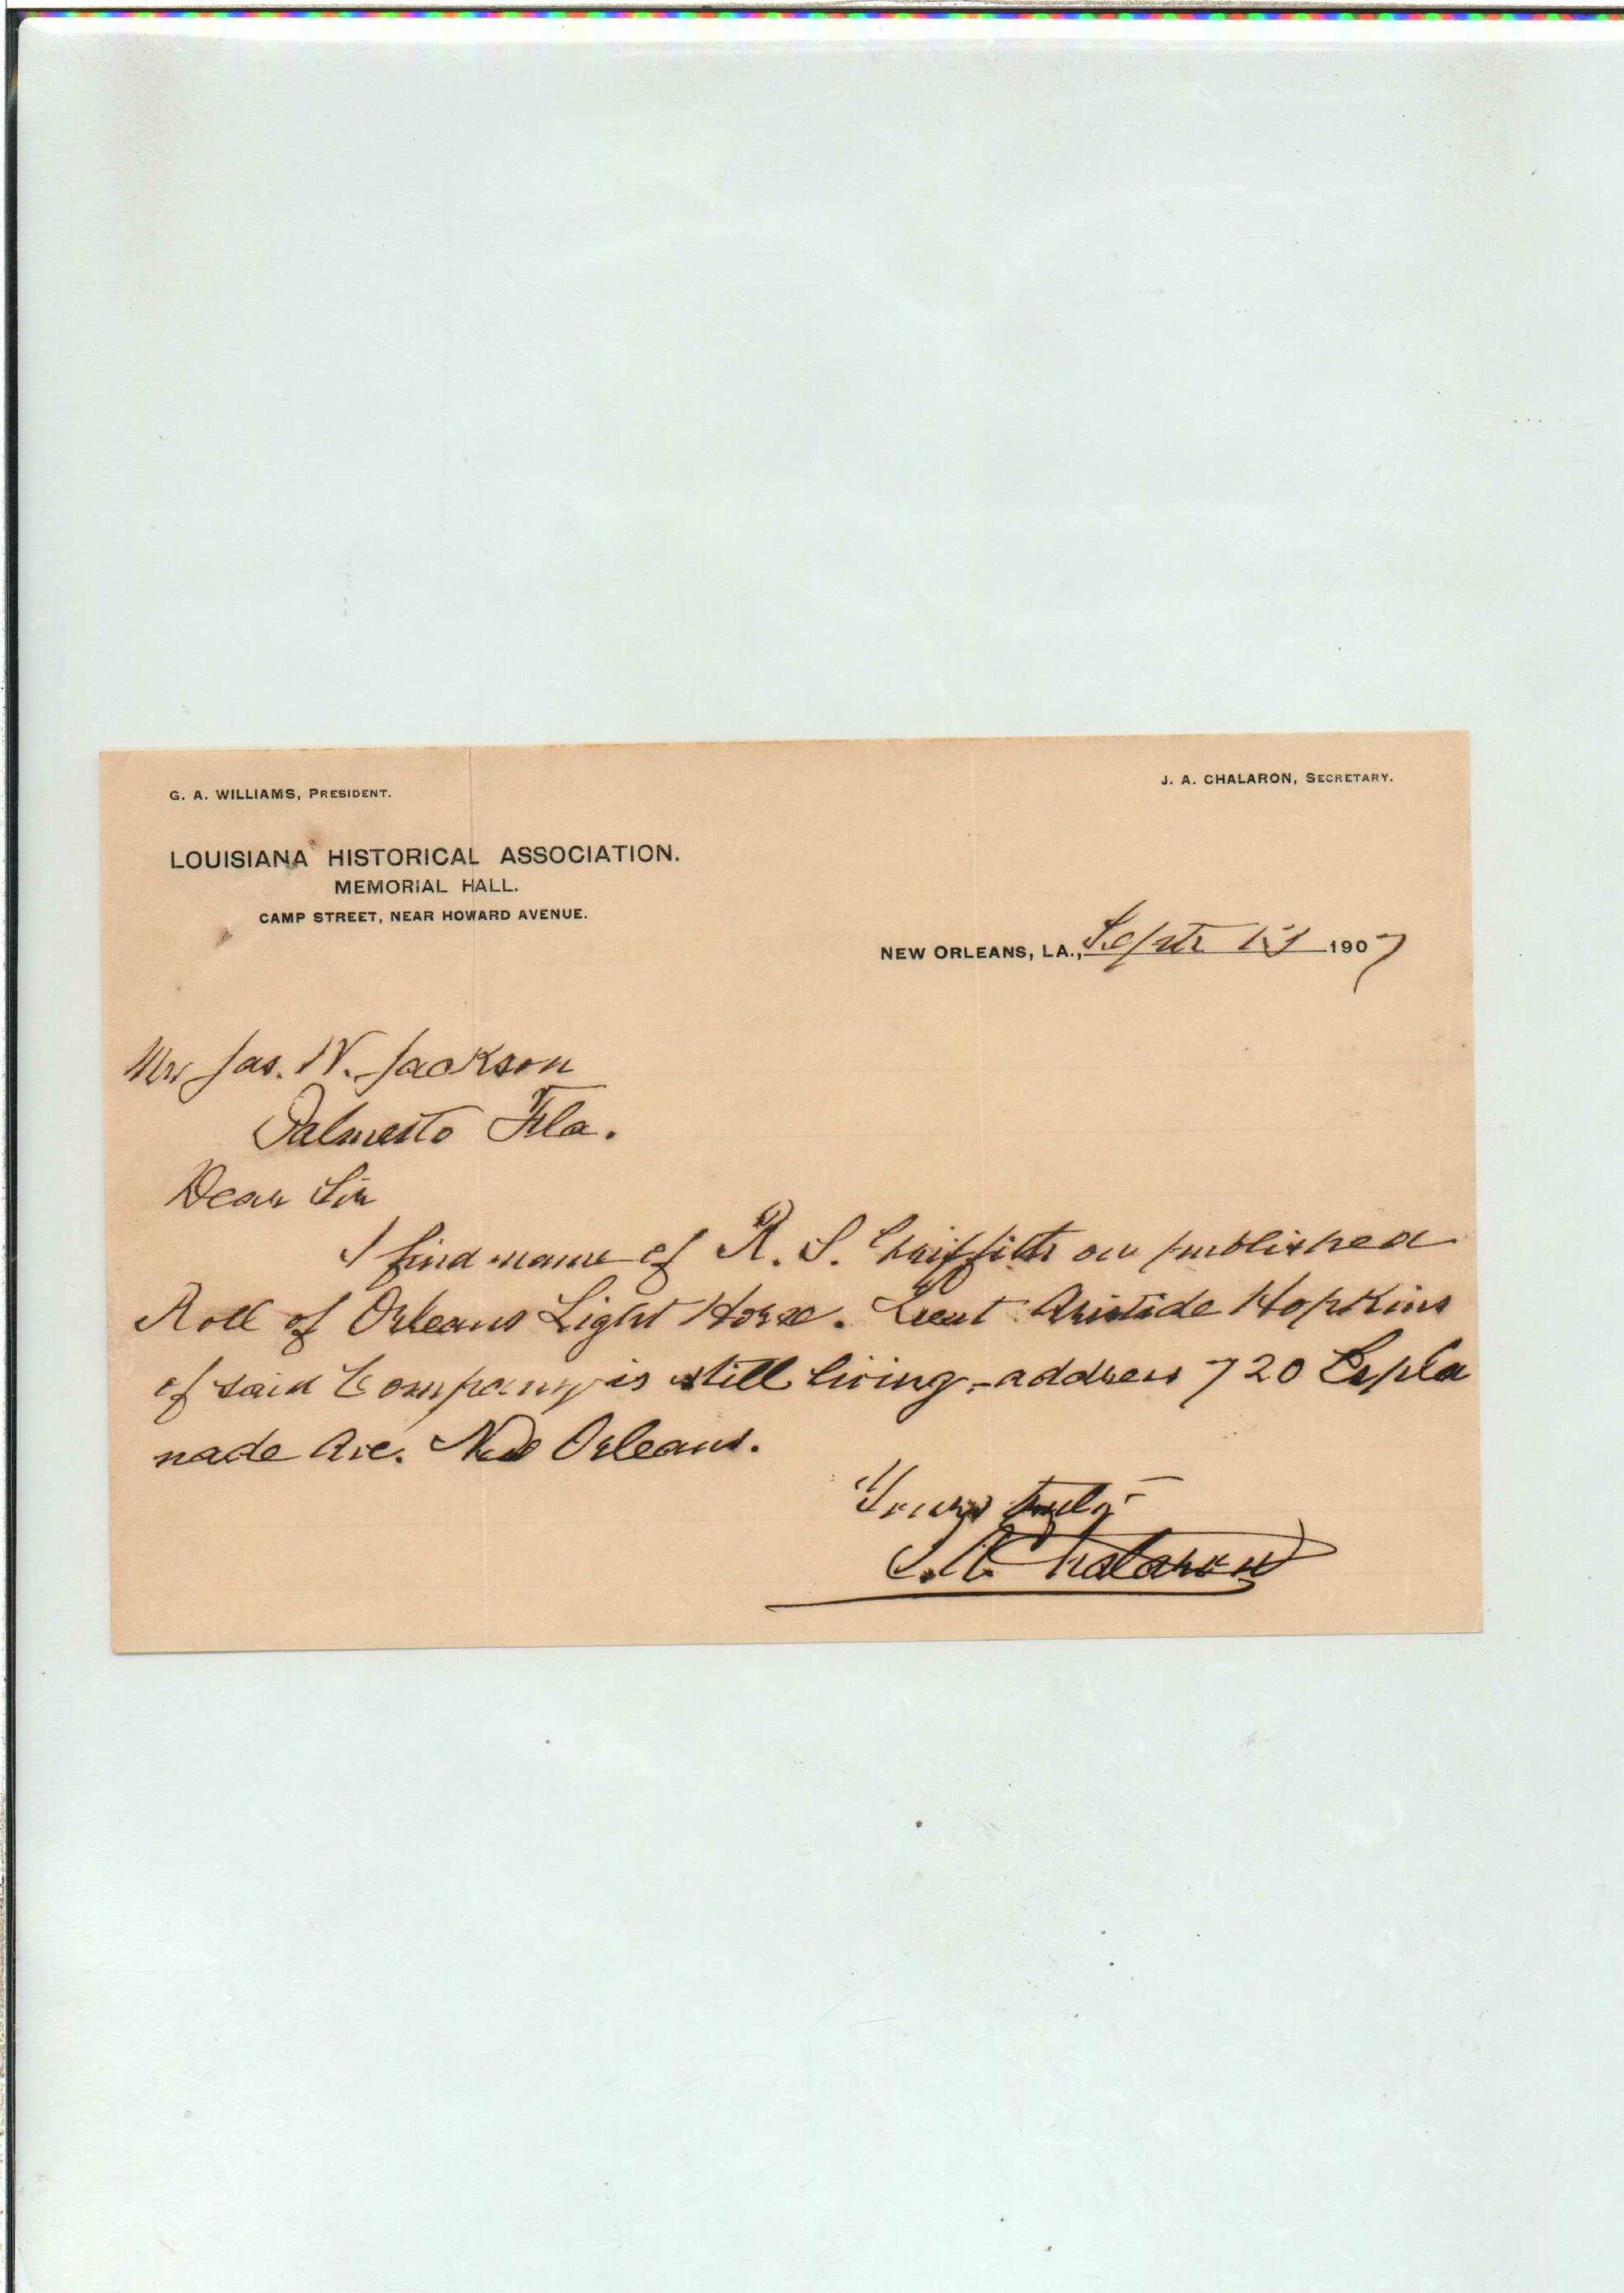 G. A. WILLIAMS, PRESIDENT.
J. A. CHALARON, SECRETARY.
LOUISIANA HISTORICAL ASSOCIATION.
MEMORIAL HALL.
CAMP STREET, NEAR HOWARD AVENUE.
NEW ORLEANS, LA., Septr 13 1907
Mr Jas. N. Jackson
Palmetto Fla.
Dear Sir
I find name of R. S. Griffith on published
Roll of Orleans Light Horse. Lieut Aristide Hopkins
of said Company is still living - address 720 Espla
nade Ave. New Orleans.
Yours truly
J. A. Chalaron